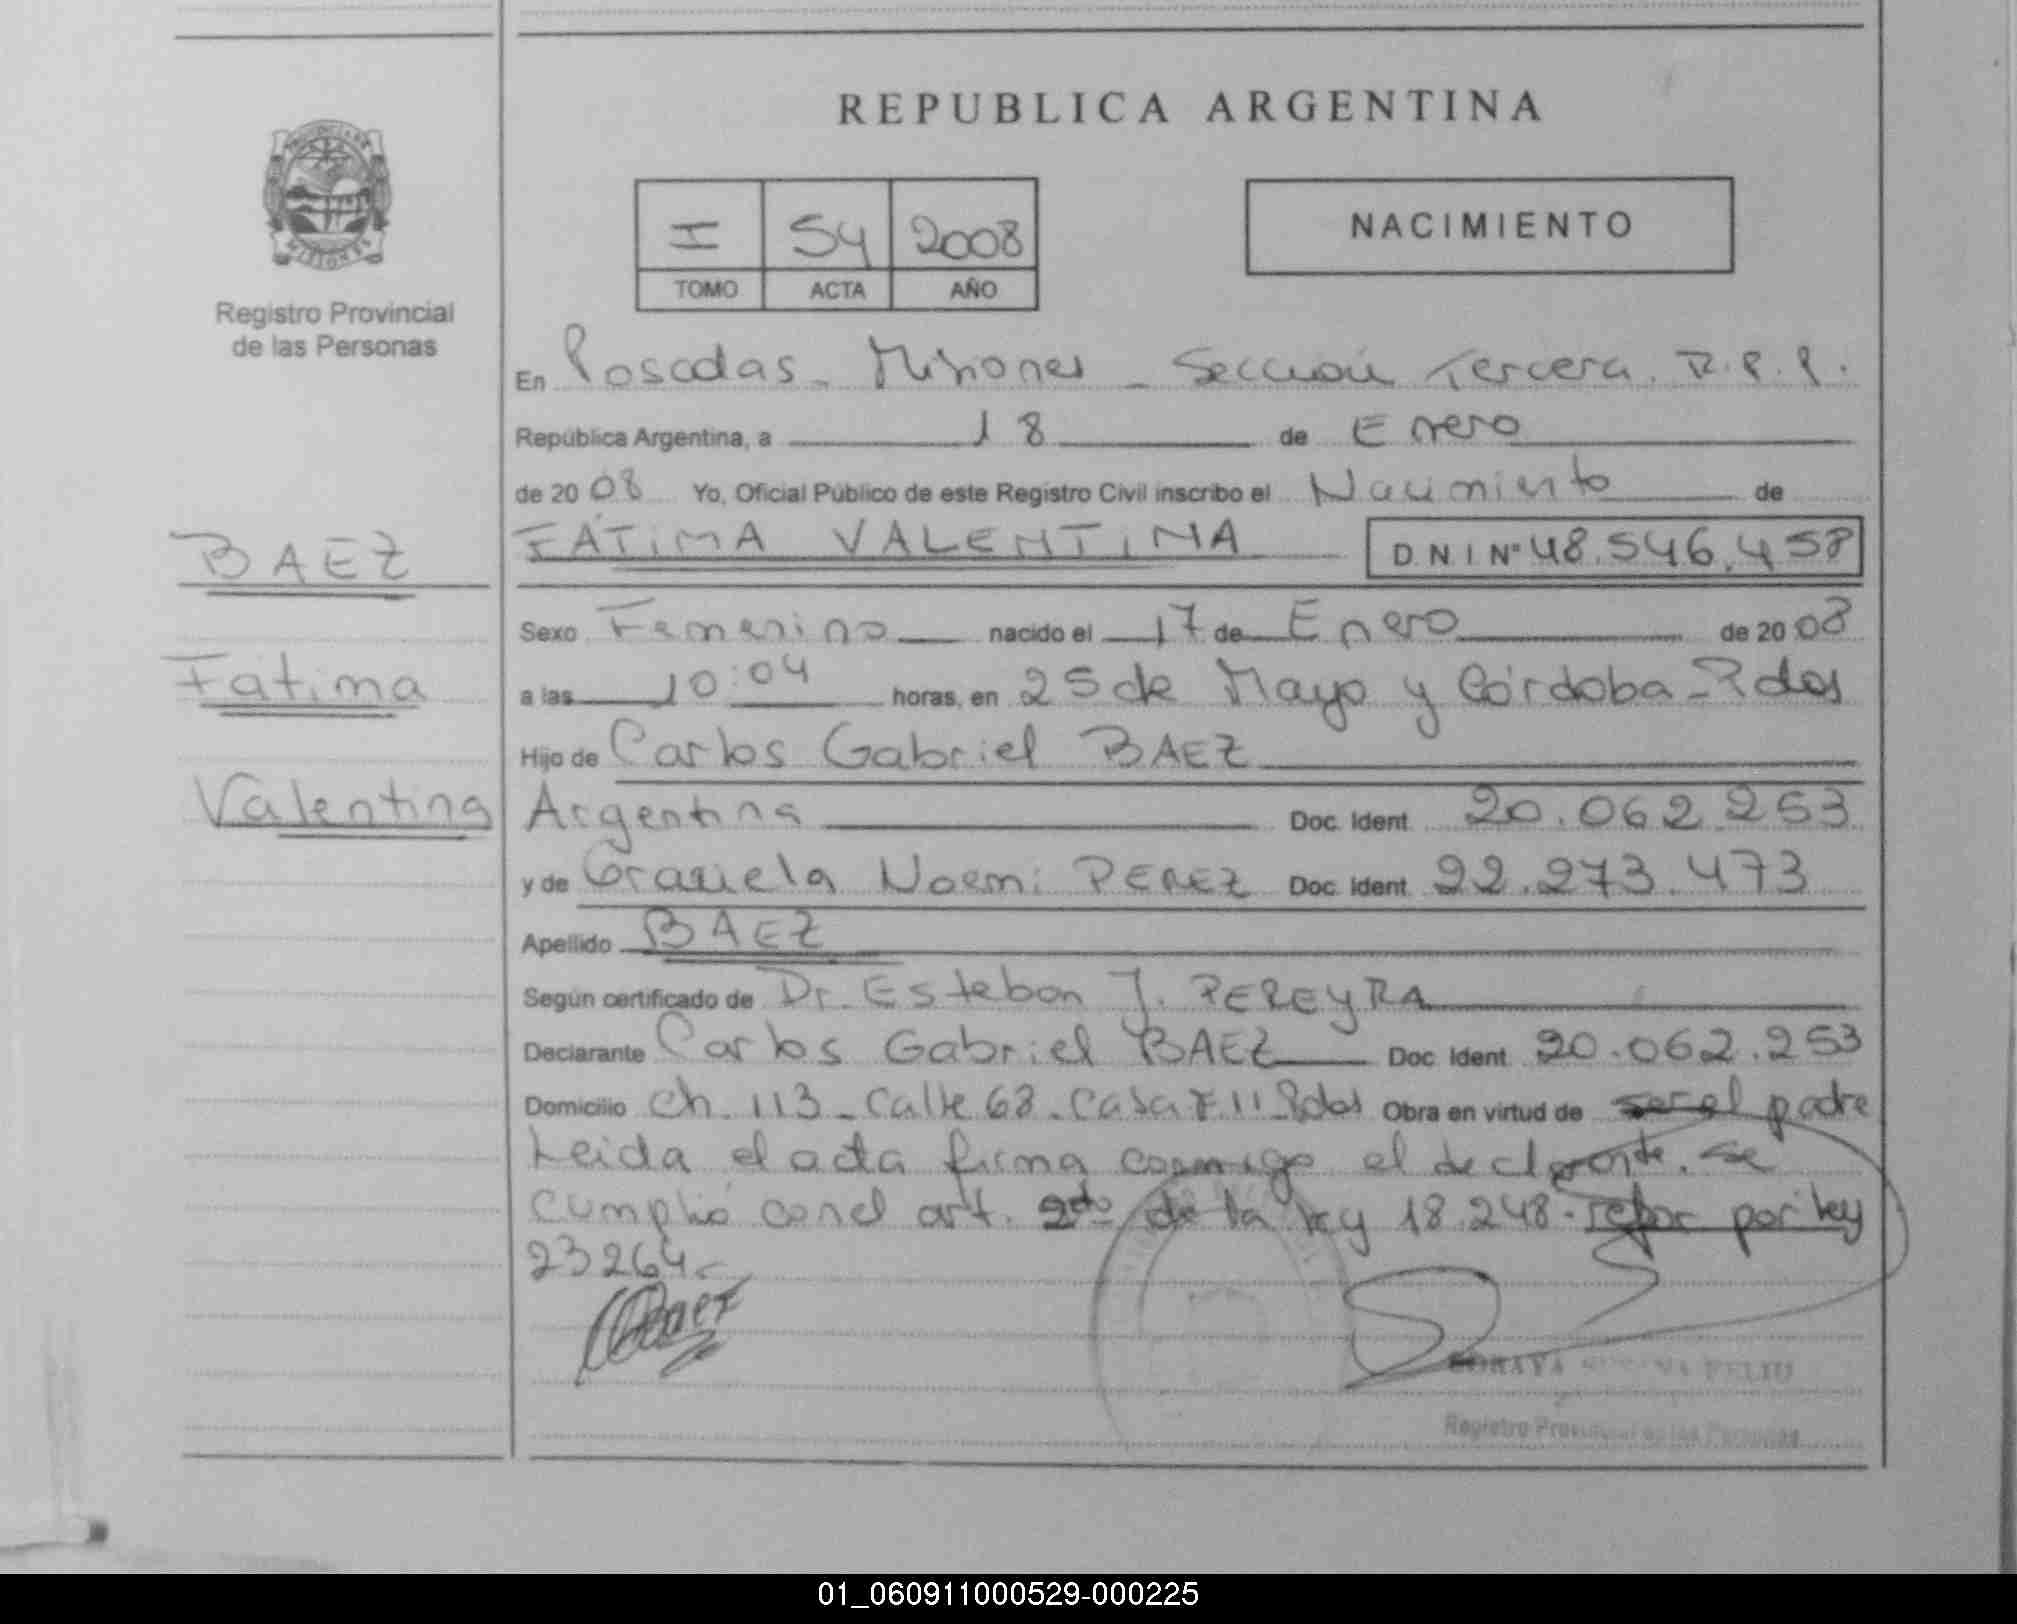 REPUBLICA ARGENTINA
PROVINCIA DE
MISIONES
Registro Provincial
de las Personas
I 54 2008
TOMO ACTA AÑO
NACIMIENTO
En Posadas - Misiones - Sección Tercera. R.P.P.
República Argentina, a 18 de Enero
de 2008 Yo, Oficial Público de este Registro Civil inscribo el Nacimiento de
FÁTIMA VALENTINA D N I Nº 48.546.458
BAEZ
Sexo Femenino nacido el 17 de Enero de 2008
Fátima
a las 10:04 horas, en 25 de Mayo y Córdoba - Pdas
Hijo de Carlos Gabriel BAEZ
Valentina
Argentina Doc. Ident. 20.062.253
y de Graciela Noemi PEREZ Doc. Ident. 22.273.473
Apellido BAEZ
Según certificado de Dr. Esteban J. PEREYRA
Declarante Carlos Gabriel BAEZ Doc. Ident. 20.062.253
Domicilio Ch. 113 - Calle 68 - Casa 11 Pdas Obra en virtud de ser el padre
Leida el acta firma conmigo el declarante. Se
cumplió con el art. 2do de la ley 18.248 - por ley
23264 -
Baez
SORAYA FELIU
Registro Provincial de las Personas
01_060911000529-000225